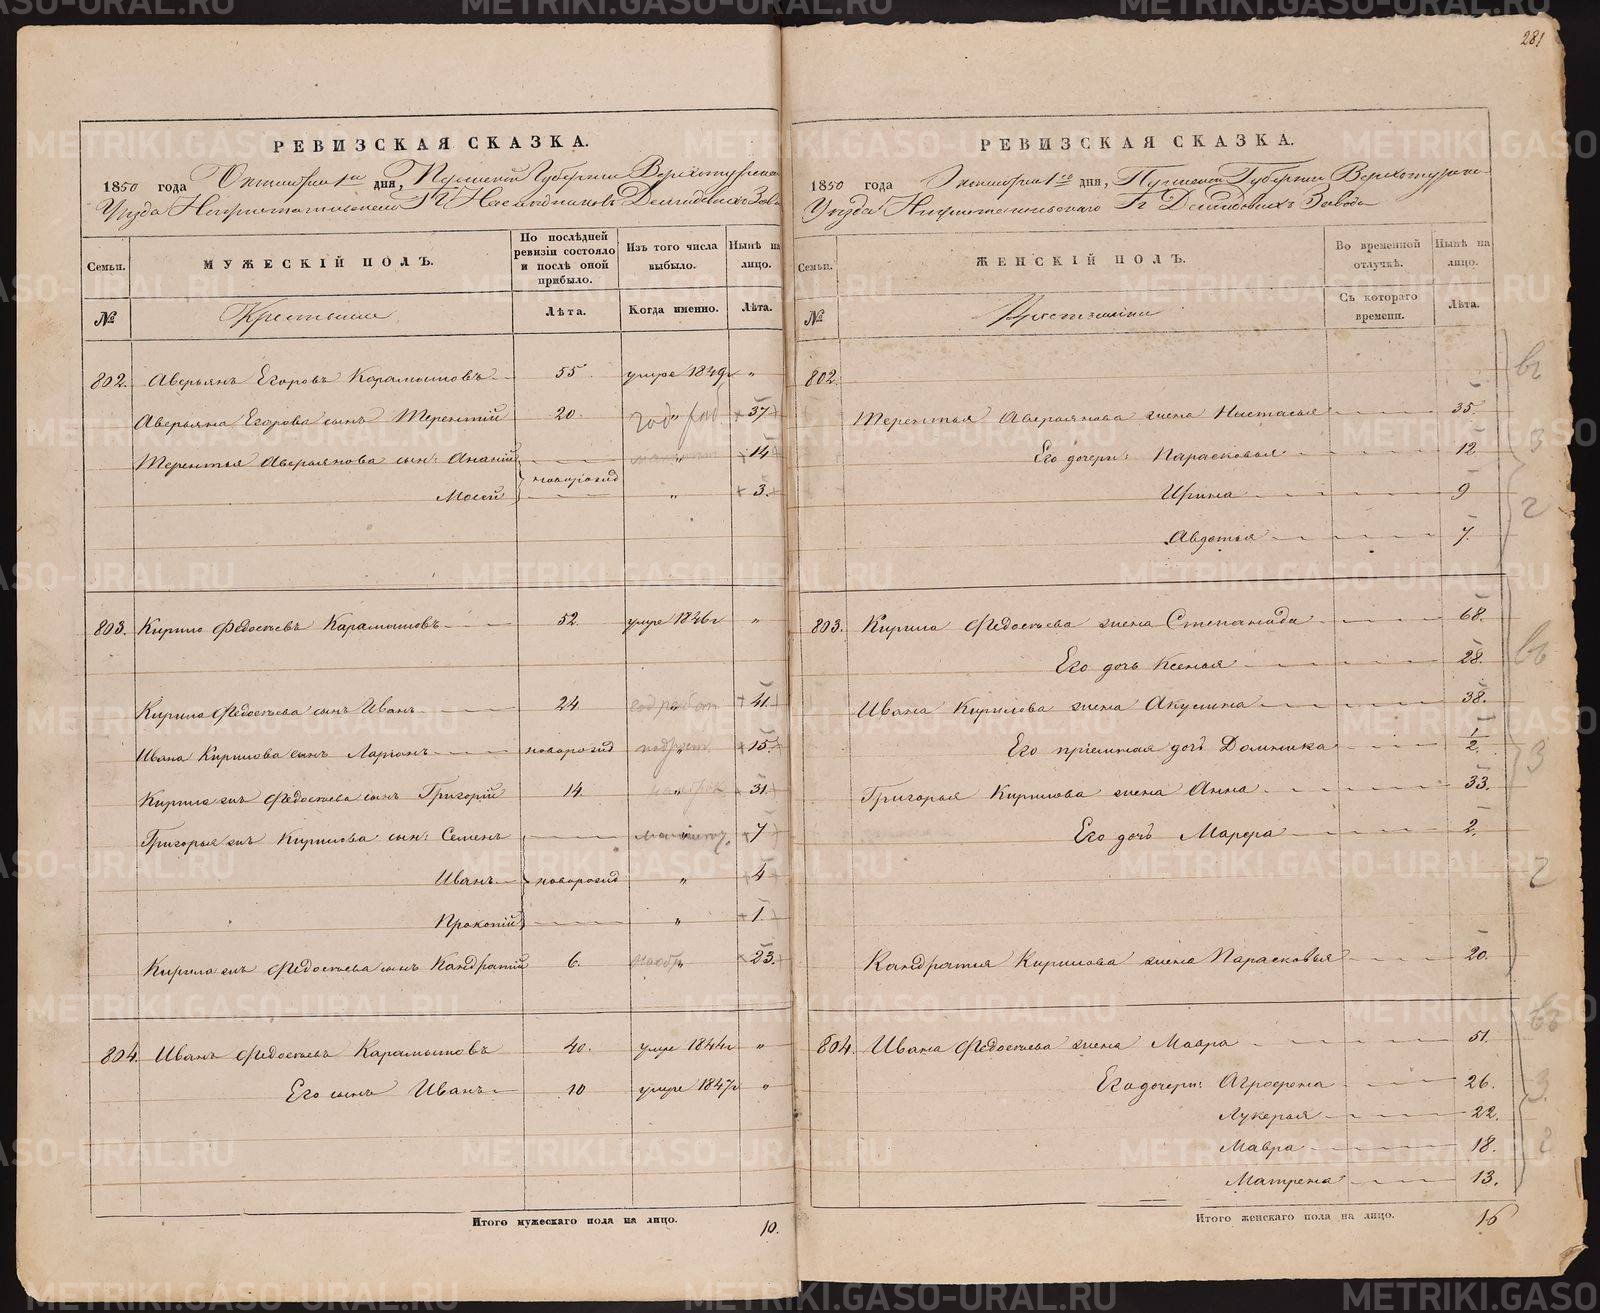 281
РЕВИЗСКАЯ СКАЗКА.
1850 года Октября 1го дня, Пермской Губернии Верхотурскаго
Уѣзда Нижнетагильскаго Гг Наслѣдниковъ Демидовыхъ Заво
Семьи. МУЖЕСКІЙ ПОЛЪ. По послѣдней ревизіи состояло и послѣ оной прибыло. Изъ того числа выбыло. Нынѣ на лицо.
№ Крестьяне Лѣта. Когда именно. Лѣта.
802. Аверьянъ Егоровъ Карамышовъ 55 умре 1849г "
Аверьяна Егорова сынъ Терентій 20. " 37
Терентья Аверьянова сын: Ананій " 14
новорожд
Мосей " 3.
803. Кирило Федосѣевъ Карамышовъ 52 умре 1846г "
Кирила Федосѣева сынъ Иванъ 24 " 41
Ивана Кирилова сынъ Ларіонъ новорожд 15.
Кирила жъ Федосѣева сынъ Григорій 14. " 31.
Григорья жъ Кирилова сын: Семенъ " 7
Иванъ новорожд " 4
Прокопій " 1.
Кирила жъ Федосѣева сынъ Кандратій 6. " 23.
804. Иванъ Федосѣевъ Карамышовъ 40. умре 1844г "
Его сынъ Иванъ 10 умре 1847г "
Итого мужескаго пола на лицо. 10.
РЕВИЗСКАЯ СКАЗКА.
1850 года Октября 1го дня, Пермской Губерніи Верхотурскаго
Уѣзда Нижнетагильскаго Гг Демидовыхъ Завода
Семьи. ЖЕНСКІЙ ПОЛЪ. Во временной отлучкѣ. Нынѣ на лицо.
№ Крестьянки Съ котораго времени. Лѣта.
802.
Терентья Аверьянова жена Настасья 35.
Его дочери: Парасковья 12
Ирина 9
Авдотья 7.
803. Кирила Федосѣева жена Степанида 68.
Его дочь Ксенья 28.
Ивана Кирилова жена Акулина 38.
Его пріемная дочь Домника 1/2.
Григорья Кирилова жена Анна 33.
Его дочь Марфа 2.
Кандратья Кирилова жена Парасковья 20.
804. Ивана Федосѣева жена Мавра 51.
Его дочери: Агрофена 26.
Лукерья 22.
Мавра 18.
Матрена 13.
Итого женскаго пола на лицо. 16
METRIKI.GASO-URAL.RU